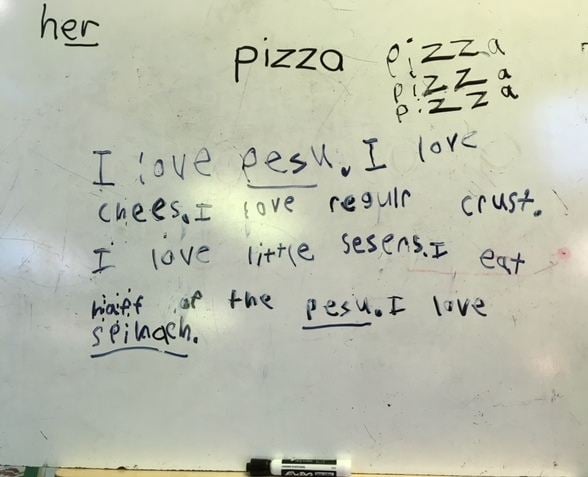 her
pizza
pizza
pizza
pizza
I love pesu. I love
chees. I love regulr crust.
I love little sesens. I eat
haff of the pesu. I love
spinach.
EXPO